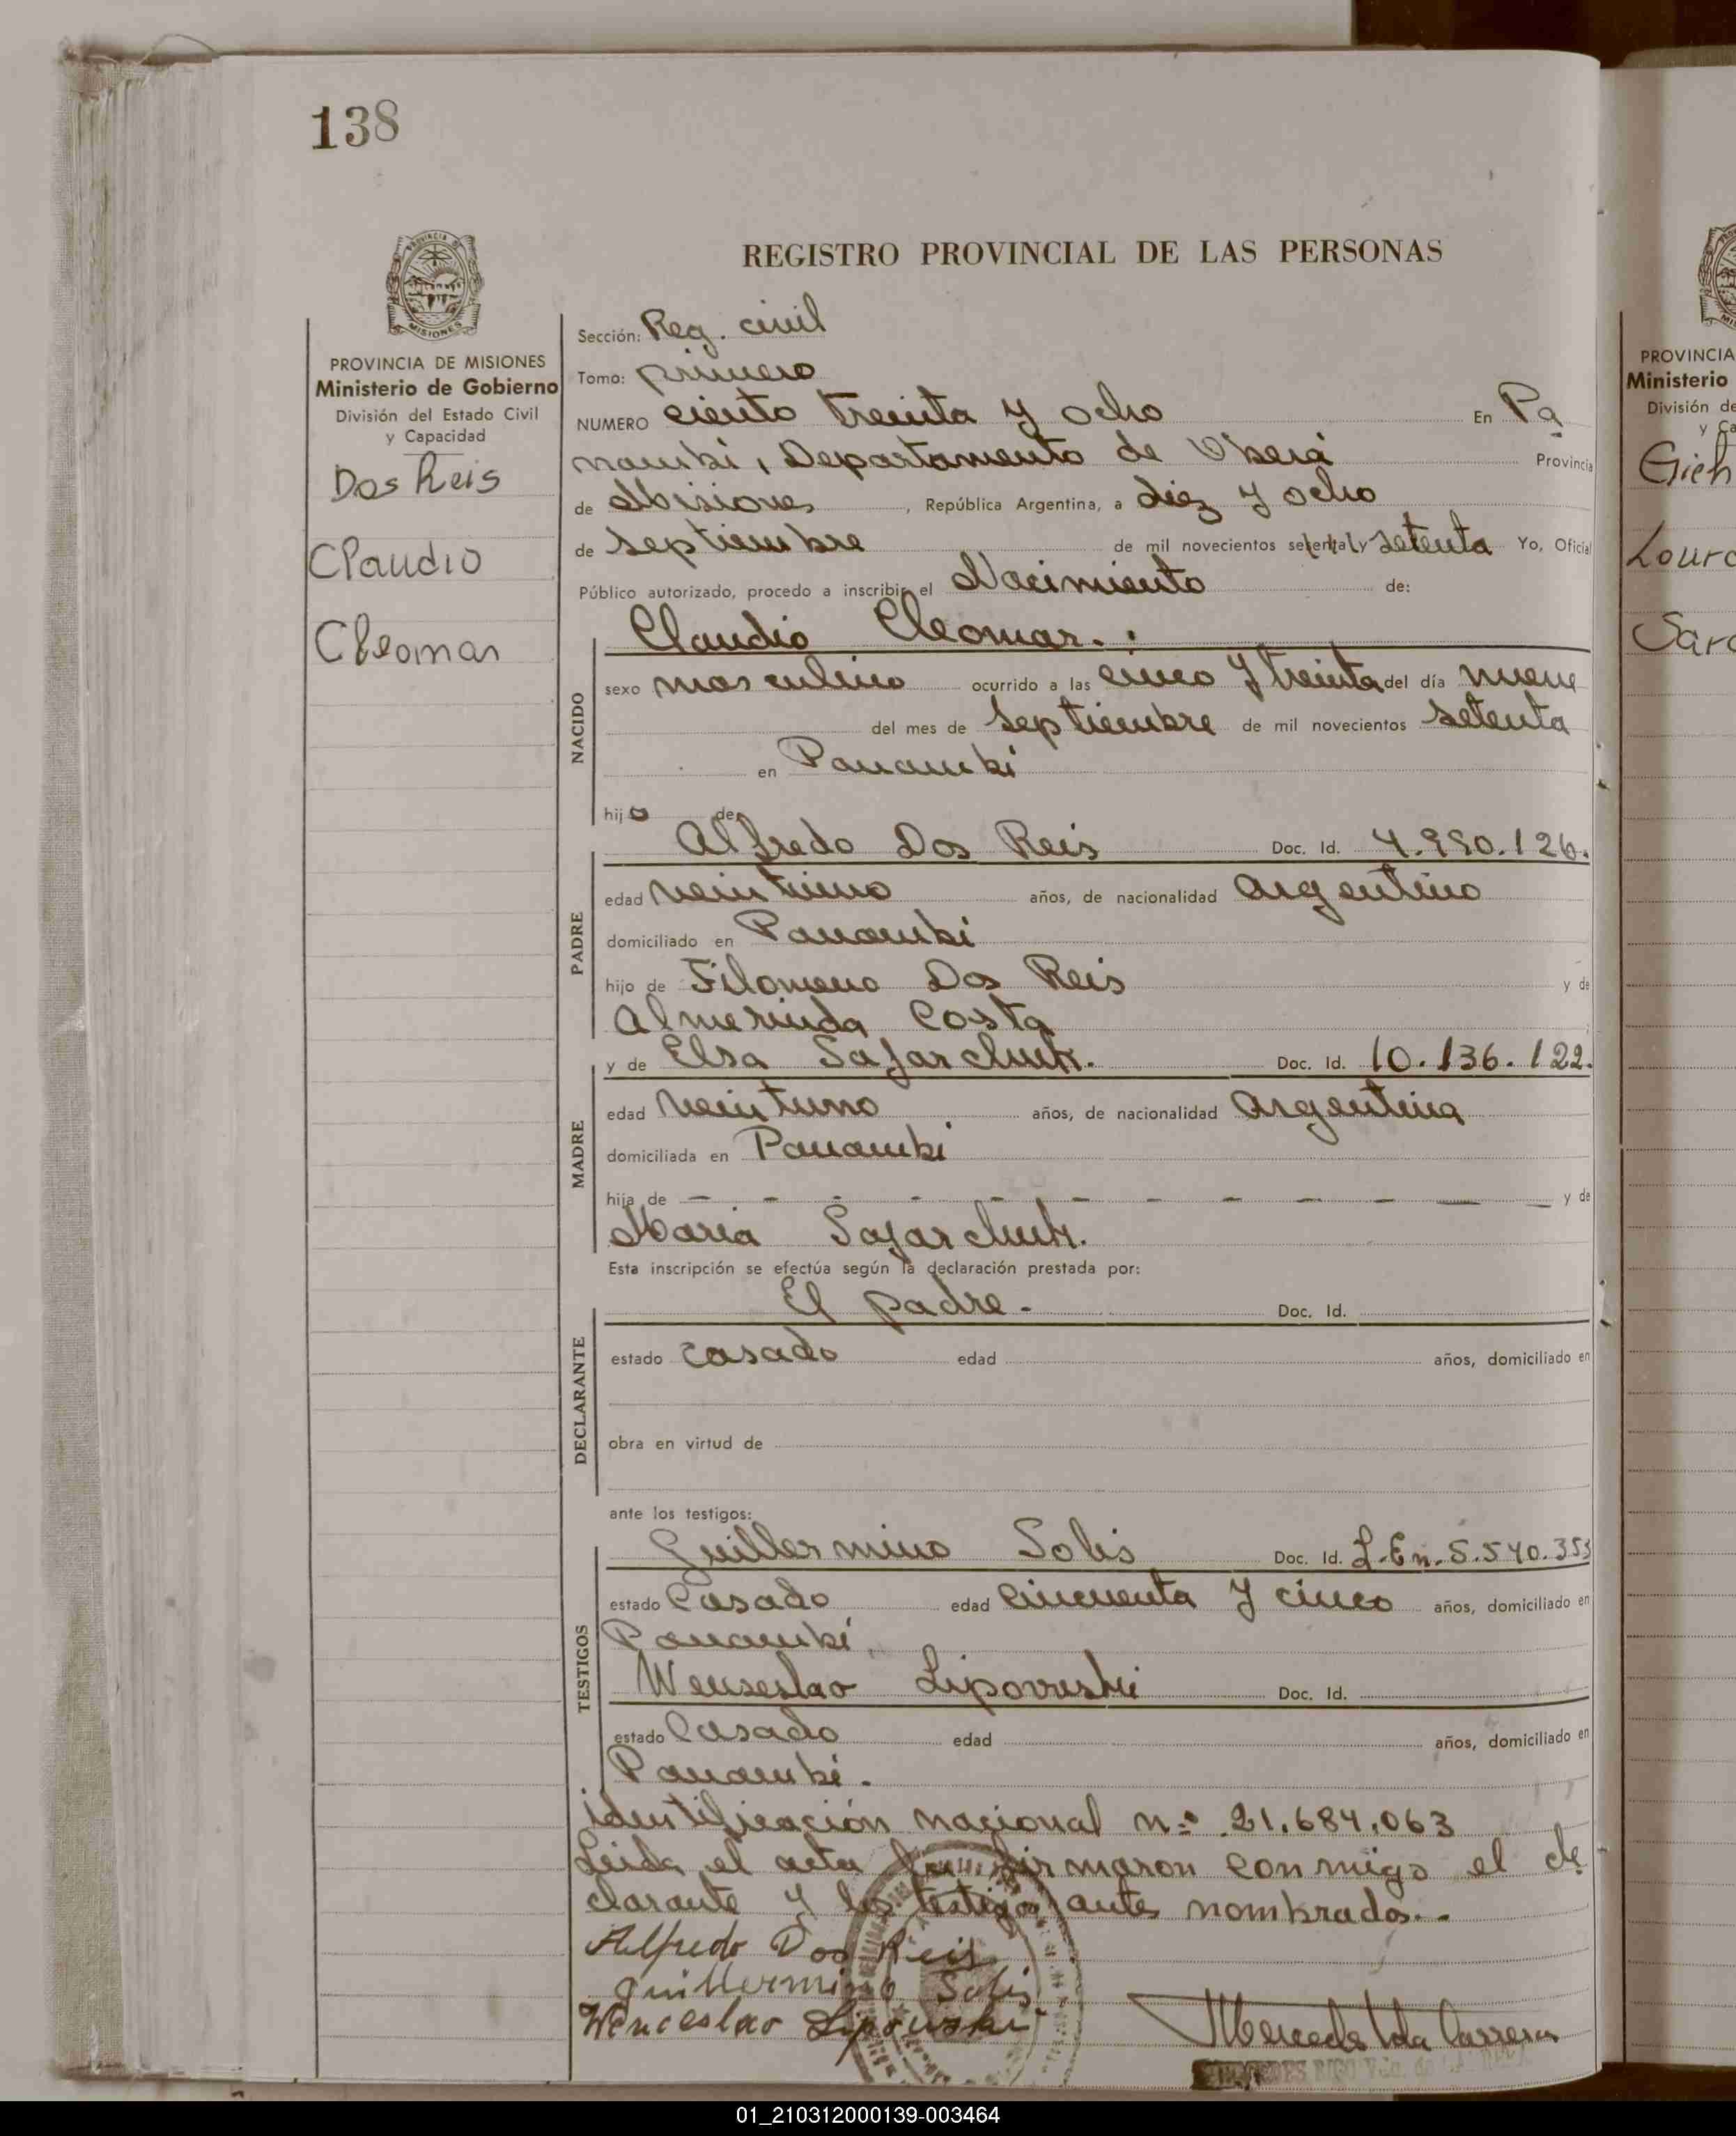 138
REGISTRO PROVINCIAL DE LAS PERSONAS
MISIONES
PROVINCIA DE MISIONES
Ministerio de Gobierno
División del Estado Civil
y Capacidad
Dos Reis
Claudio
Cleomar
Sección: Reg. civil
Tomo: primero
NUMERO ciento treinta y ocho En Pa
nambi, Departamento de Oberá Provincia
de Misiones, República Argentina, a diez y ocho
de septiembre de mil novecientos setenta Yo, Oficial
Público autorizado, procedo a inscribir el Nacimiento de:
Claudio Cleomar.
NACIDO
sexo masculino ocurrido a las cinco y treinta del día nueve
del mes de septiembre de mil novecientos setenta
en Panambi
hijo de
Alfredo Dos Reis Doc. Id. 7.990.126.
PADRE
edad veintiuno años, de nacionalidad argentino
domiciliado en Panambi
hijo de Filomeno Dos Reis y de
Almerinda Costa
y de Elsa Sajarchuk. Doc. Id. 10.136.122.
MADRE
edad veintiuno años, de nacionalidad argentina
domiciliada en Panambi
hija de - - - - - - - - - - - y de
Maria Sajarchuk.
Esta inscripción se efectúa según la declaración prestada por:
El padre. Doc. Id.
DECLARANTE
estado casado edad años, domiciliado en
obra en virtud de
ante los testigos:
Guillermino Solis Doc. Id. L.En. 5.540.353
TESTIGOS
estado Casado edad cincuenta y cinco años, domiciliado en
Panambi
Wenseslao Lipowski Doc. Id.
estado Casado edad años, domiciliado en
Panambi.
identificación nacional nº 21.684.063
Leida el acta la firmaron conmigo el de
clarante y los testigos antes nombrados.-
Alfredo Dos Reis
Guillermino Solis
Wenceslao Lipowski
PROVINCIA
Ministerio
División de
y Ca
Gieh
Lourd
Sara
01_210312000139-003464